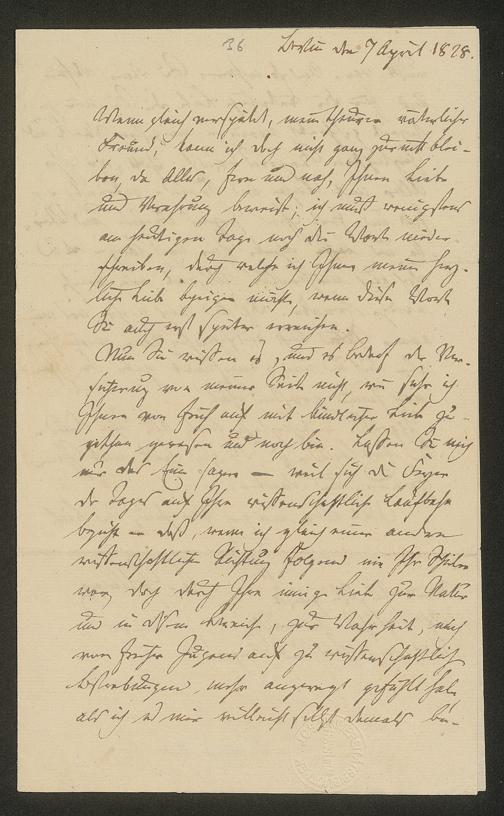 36 Berlin den 7 April 1828.
Wenn gleich verspätet, mein theurer väterlicher
Freund, kann ich doch nicht ganz zurückblei-
ben, da Alles, fern und nah, Ihnen Liebe
und Verehrung beweist; ich muß wenigstens
am heutigen Tage noch die Worte nieder-
schreiben, durch welche ich Ihnen meine herz-
liche Liebe bezeigen möchte, wenn diese Worte
Sie auch erst später erreichen.
Nun Sie wissen es, und es bedarf der Ver-
sicherung von meiner Seite nicht, wie sehr ich
Ihnen von früh auf mit kindlicher Liebe zu-
gethan gewesen und noch bin. Lassen Sie mich
nur das Eine sagen — weil sich die Feyer
des Tages auf Ihre wissenschaftliche Laufbahn
bezieht — daß, wenn ich gleich einer andern
wissenschaftlichen Richtung folgend nie Ihr Schüler
war, doch durch Ihre innige Liebe zur Natur
und in diesem Bereiche, zur Wahrheit, mich
von früher Jugend auf zu wissenschaftlichen
Bestrebungen mehr angeregt gefühlt habe
als ich es mir vielleicht selbst damals be-